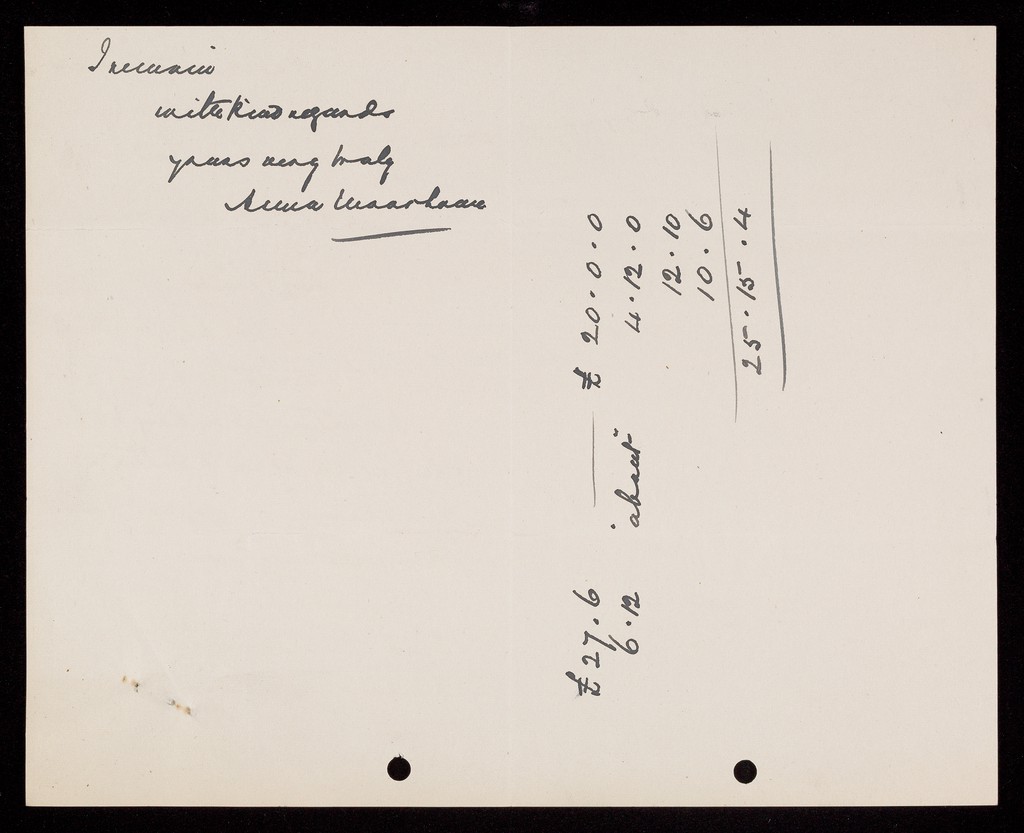 I remain
with kind regards
yours very truly
Anna
£ 27.6 — £ 20.0.0
6.12 "about" 4.12.0
12.10
10.6
25.15.4